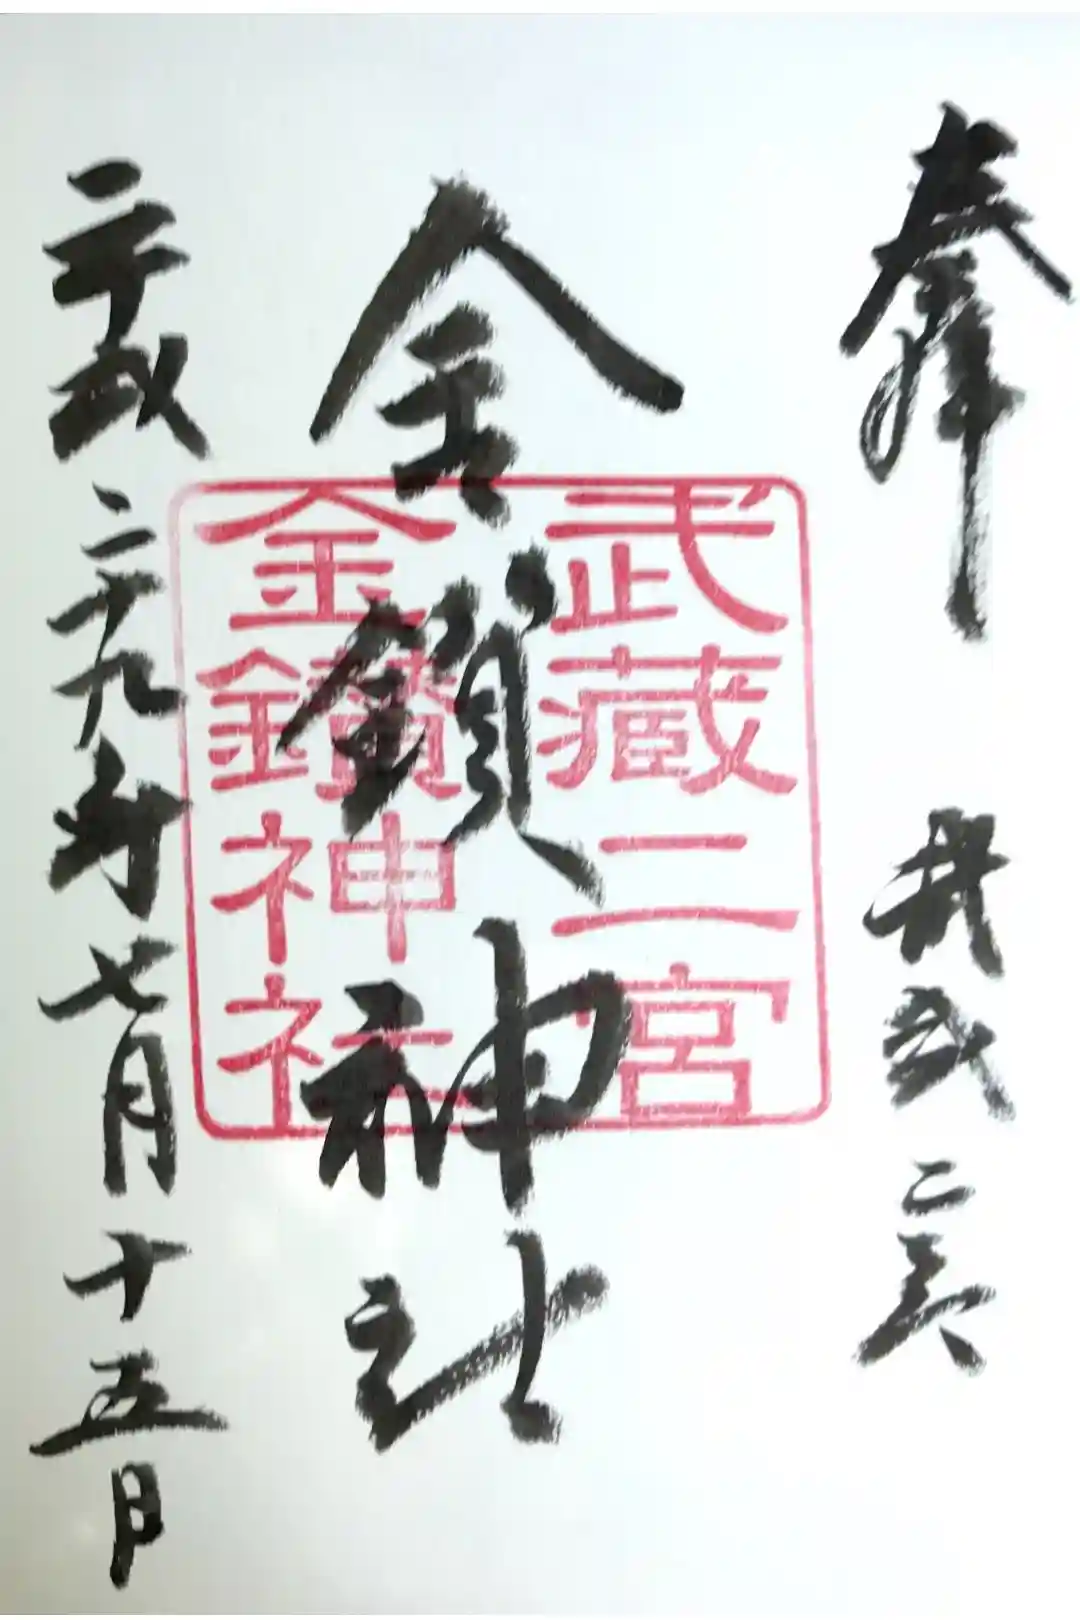 奉拝 武蔵二宮
金鑚神社
平成二十九年七月十五日
武蔵二宮
金鑚神社